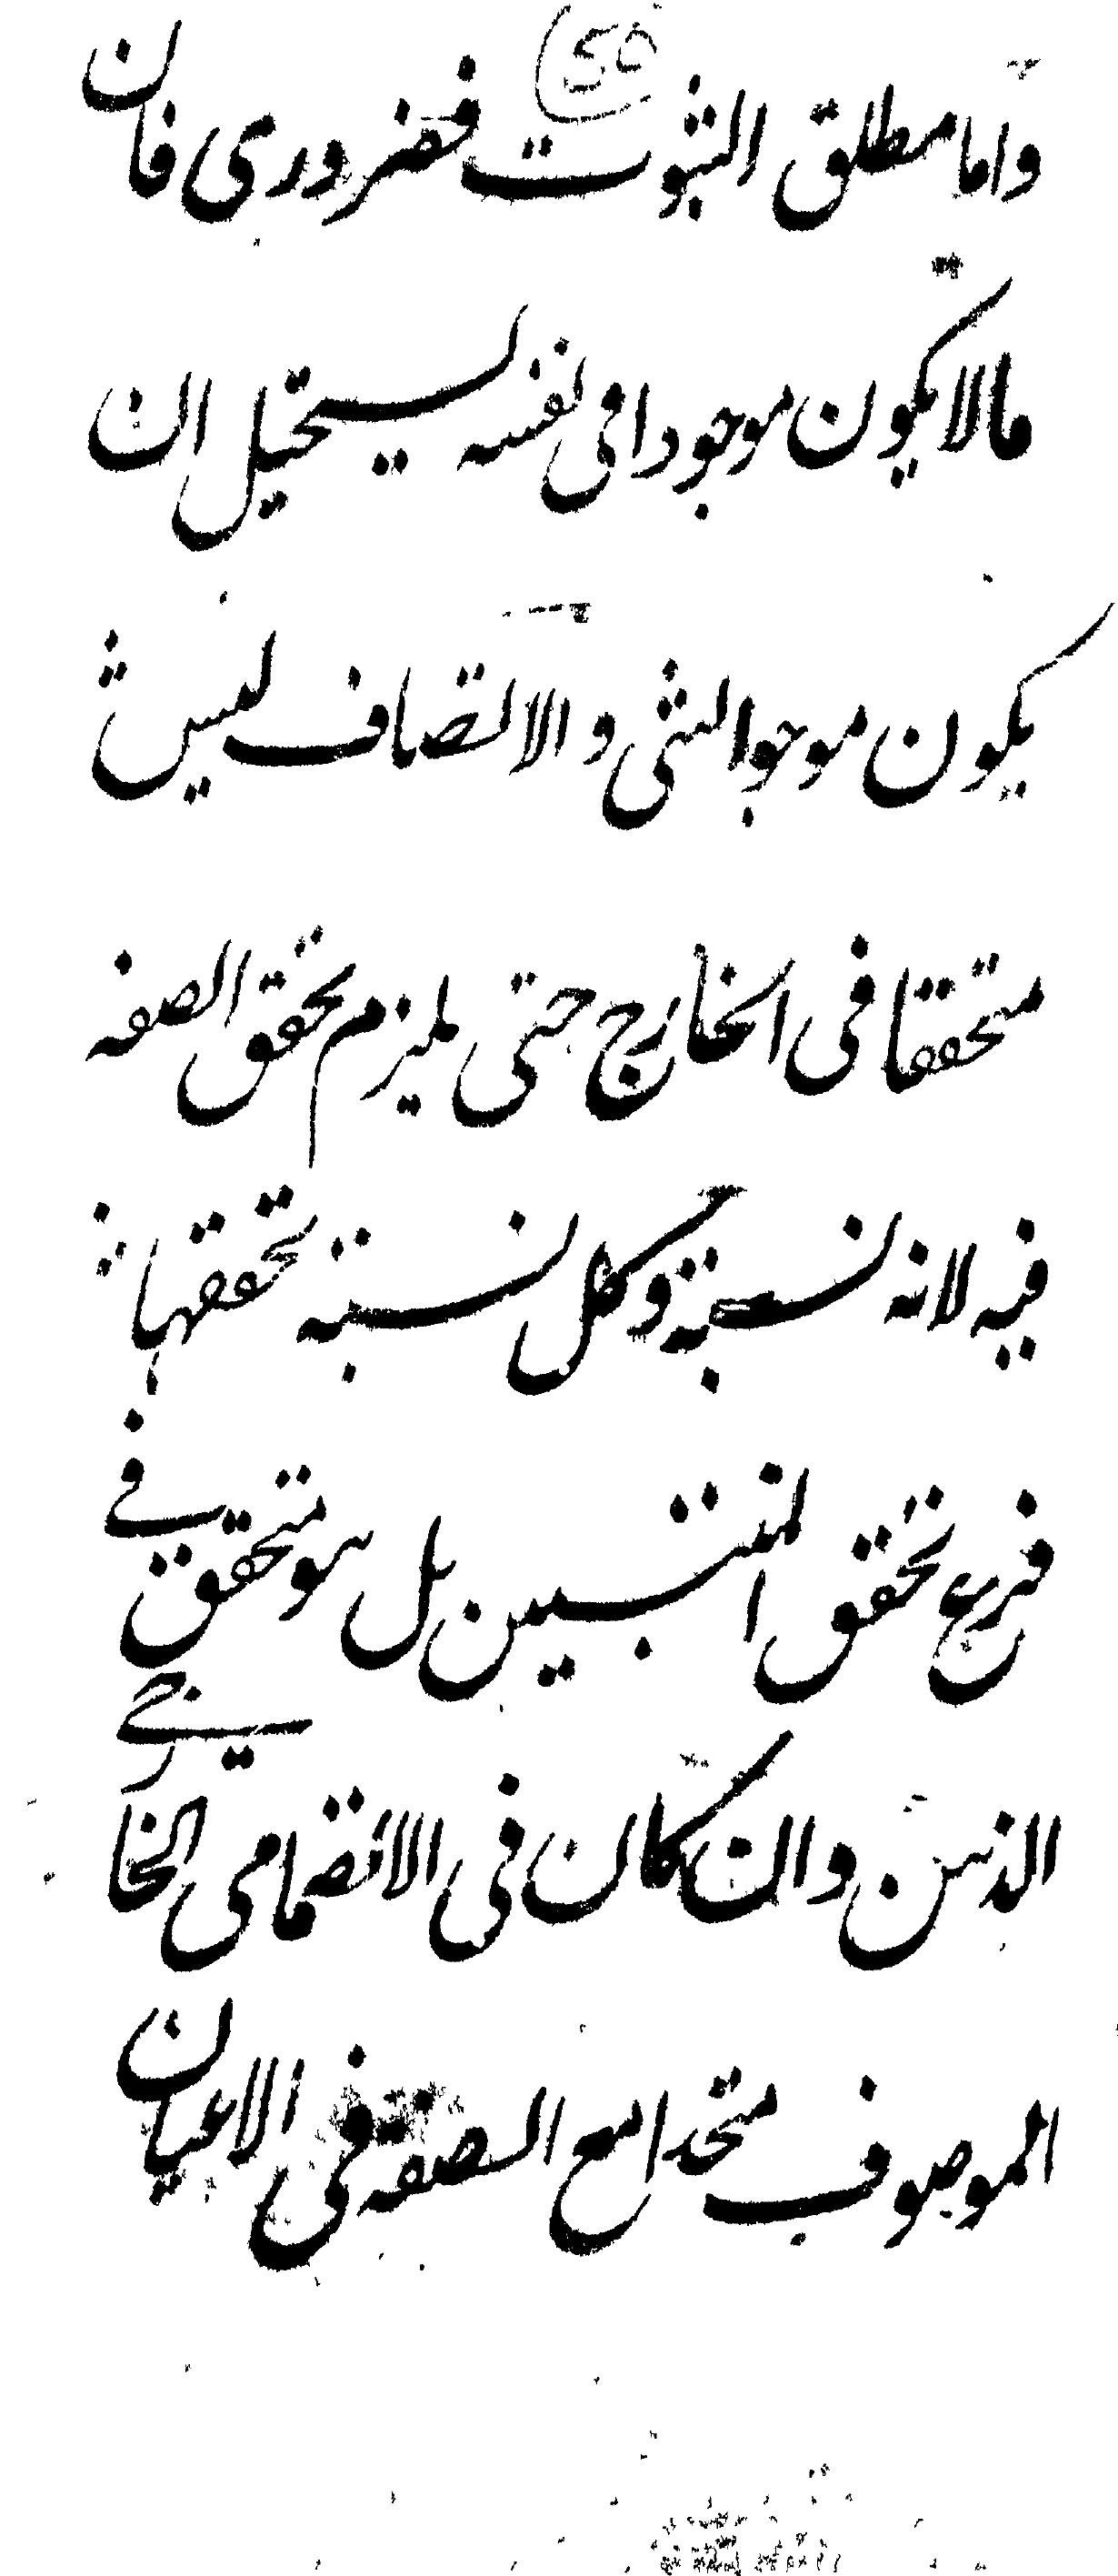 واما مطلق الثبوت فضروري فان
مالا يكون موجودا في نفسه يستحيل ان
يكون موجوا لشي والاتصاف ليس
متحققا في الخارج حتى يلزم تحقق الصفه
فيه لانه نسبة وكل نسبة تحققها
فرع تحقق المنتسبين بل هو متحقق في
الذهن وان كان في الانضمامي الخارجي
الموصوف متحدا مع الصفة في الاعيان